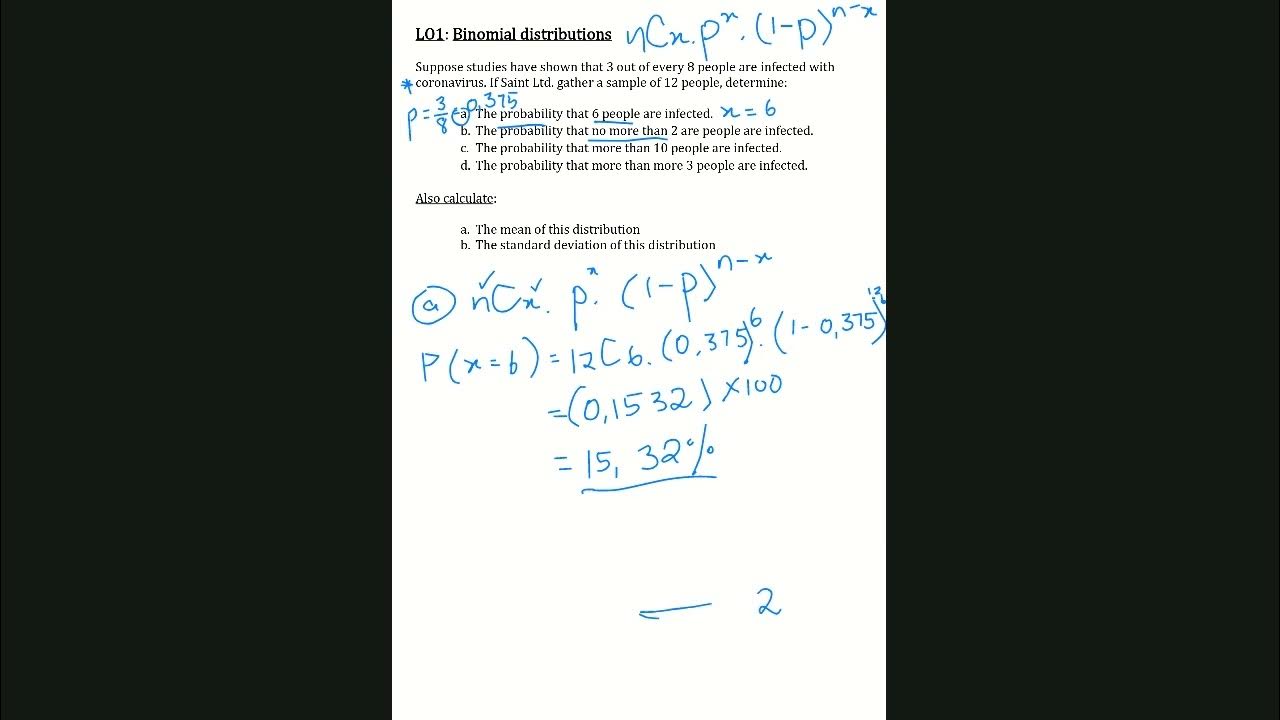 LO1: Binomial distributions nCx.pˣ.(1-p)ⁿ⁻ˣ
Suppose studies have shown that 3 out of every 8 people are infected with
* coronavirus. If Saint Ltd. gather a sample of 12 people, determine:
p=3/8=0,375
a. The probability that 6 people are infected. x=6
b. The probability that no more than 2 are people are infected.
c. The probability that more than 10 people are infected.
d. The probability that more than more 3 people are infected.
Also calculate:
a. The mean of this distribution
b. The standard deviation of this distribution
a nCx. pˣ. (1-p)ⁿ⁻ˣ
P(x=6) = 12C6. (0,375)⁶. (1-0,375)
=(0,1532)×100
= 15,32%
2